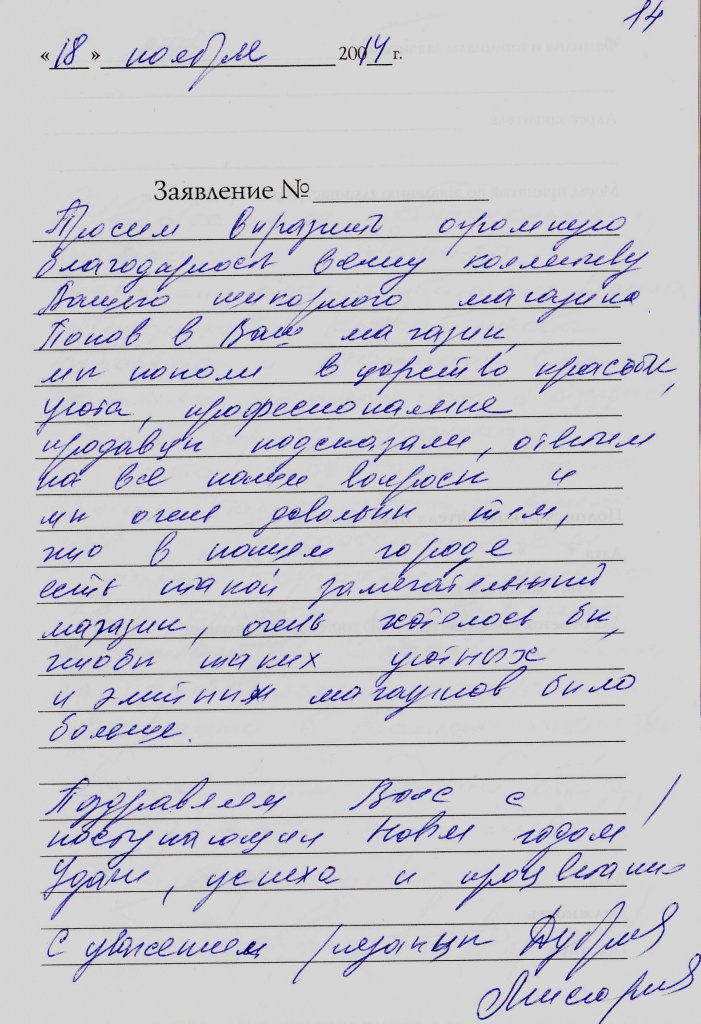 14
« 18 » ноября 20014 г.
Заявление №
Просим выразить огромную
благодарность всему коллективу
Вашего шикарного магазина
Попав в Ваш магазин,
мы попали в царство красоты,
уюта, профессиональные
продавцы подсказали, ответили
на все наши вопросы и
мы очень довольны тем,
что в нашем городе
есть такой замечательный
магазин, очень хотелось бы,
чтобы таких уютных
и элитных магазинов было
больше.
Поздравляем Вас с
наступающим Новым годом
Удачи, успеха и процветания
С уважением